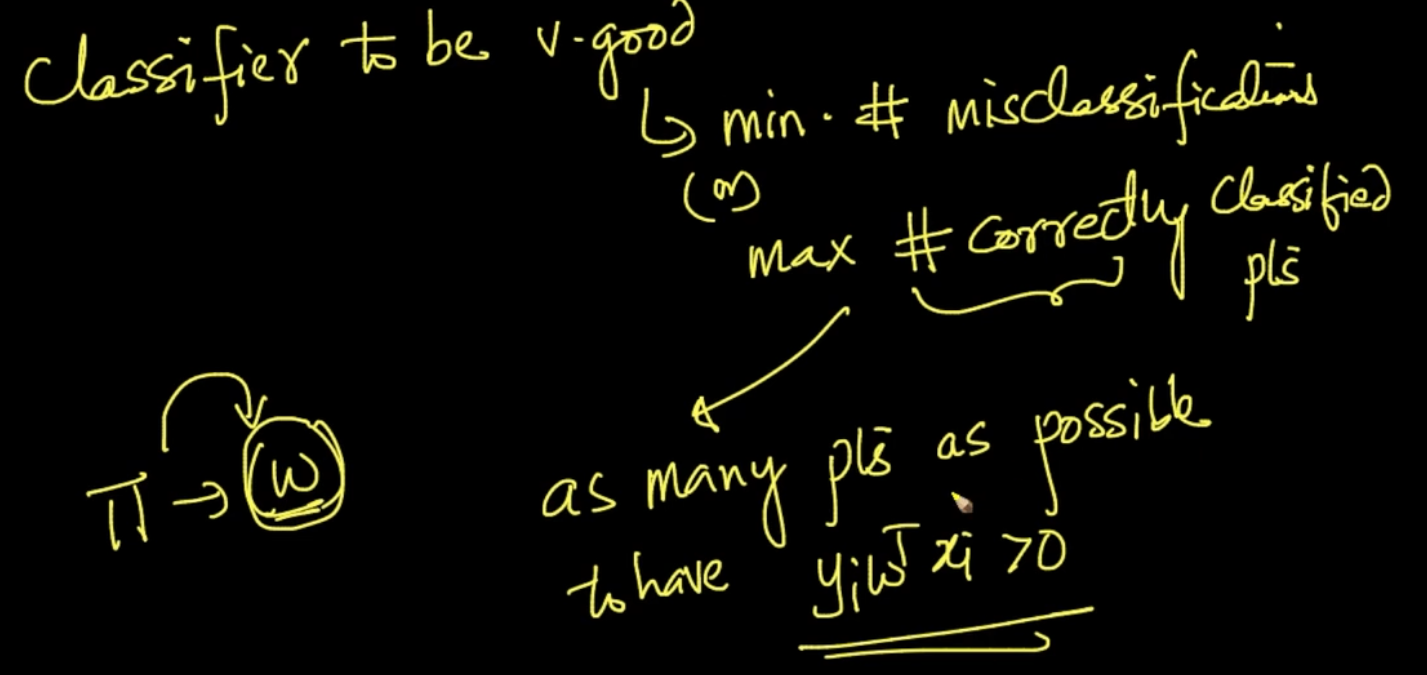 Classifier to be v.good
↳ min. # misclassifications
(or)
max # correctly classified pts
π → w
as many pts as possible
to have yᵢwᵀxᵢ > 0